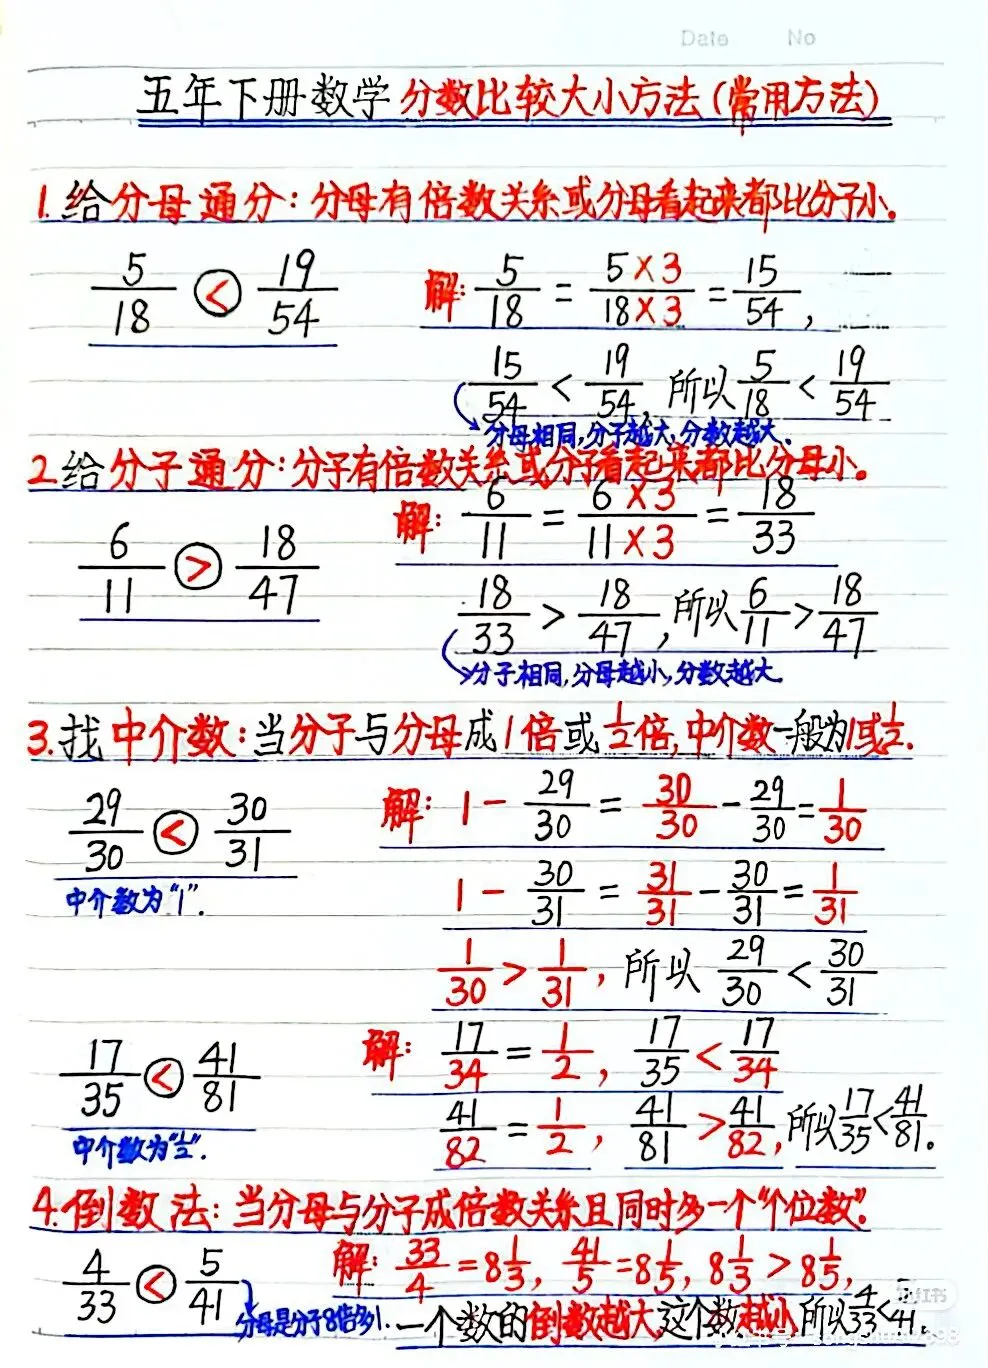 Date No
五年下册数学 分数比较大小方法(常用方法)
1.给分母通分:分母有倍数关系或分母看起来都比分子小。
5/18 < 19/54 解: 5/18 = 5×3/18×3 = 15/54,
15/54 < 19/54, 所以 5/18 < 19/54
分母相同,分子越大,分数越大.
2.给分子通分:分子有倍数关系或分子看起来都比分母小。
6/11 > 18/47 解: 6/11 = 6×3/11×3 = 18/33
18/33 > 18/47, 所以 6/11 > 18/47
分子相同,分母越小,分数越大.
3.找中介数:当分子与分母成1倍或1/2倍,中介数一般为1或1/2.
29/30 < 30/31 解: 1 - 29/30 = 30/30 - 29/30 = 1/30
中介数为"1".
1 - 30/31 = 31/31 - 30/31 = 1/31
1/30 > 1/31, 所以 29/30 < 30/31
17/35 < 41/81 解: 17/34 = 1/2, 17/35 < 17/34
中介数为"1/2".
41/82 = 1/2, 41/81 > 41/82, 所以 17/35 < 41/81。
4.倒数法:当分母与分子成倍数关系且同时多一个"个位数".
4/33 < 5/41 解: 33/4 = 8 1/3, 41/5 = 8 1/5, 8 1/3 > 8 1/5,
分母是分子8倍多1.
一个数的倒数越大,这个数越小 所以 4/33 < 5/41.